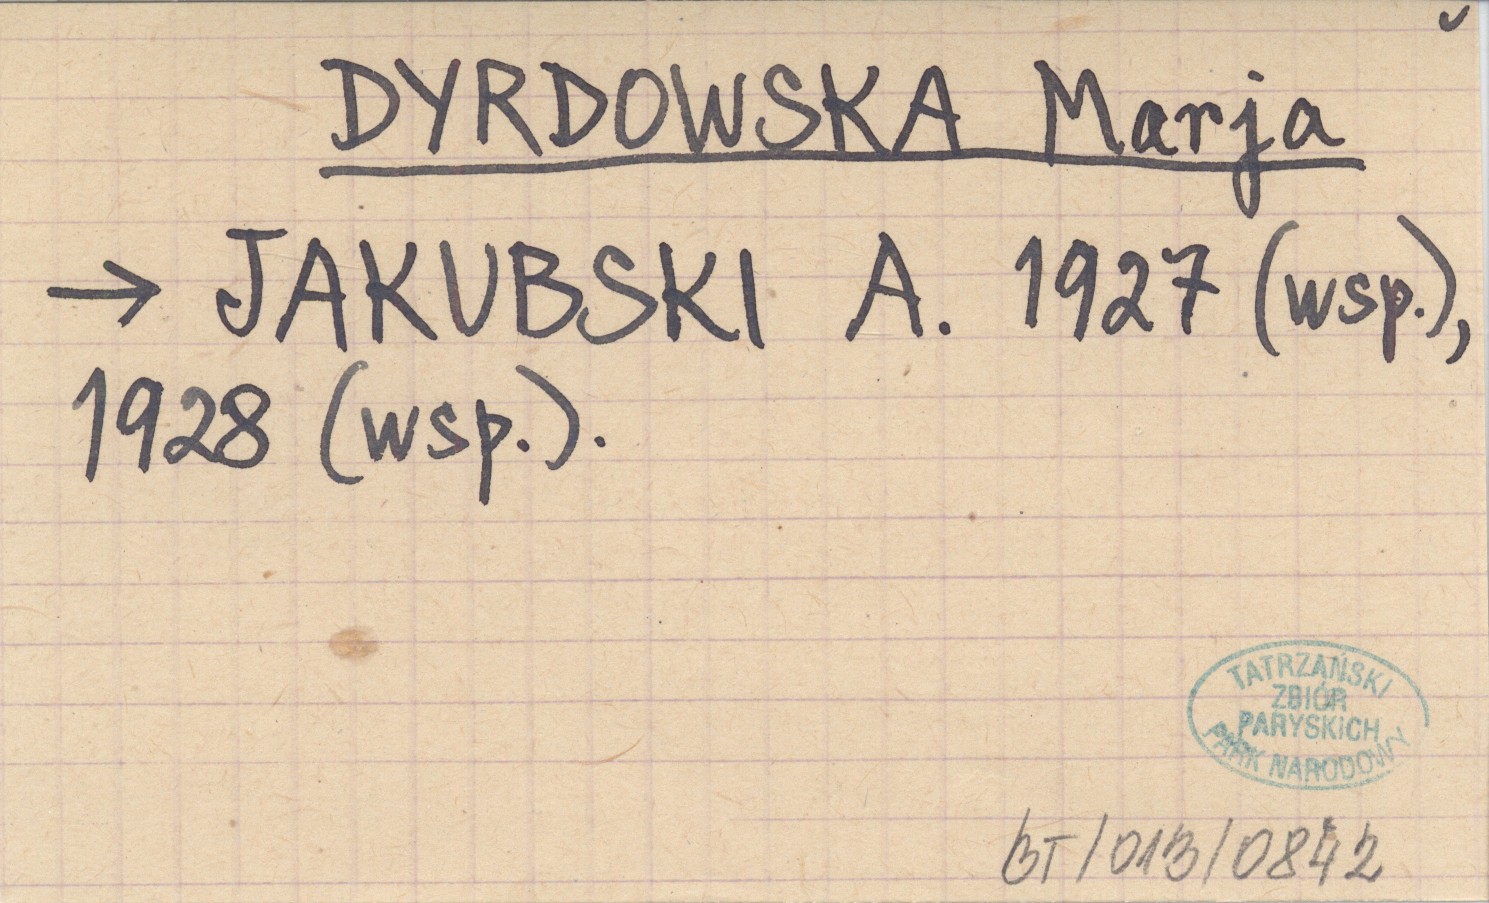 DYRDOWSKA Marja
→ JAKUBSKI A. 1927 (wsp.),
1928 (wsp.).
TATRZAŃSKI
ZBIÓR
PARYSKICH
PARK NARODOWY
BT/013/0842